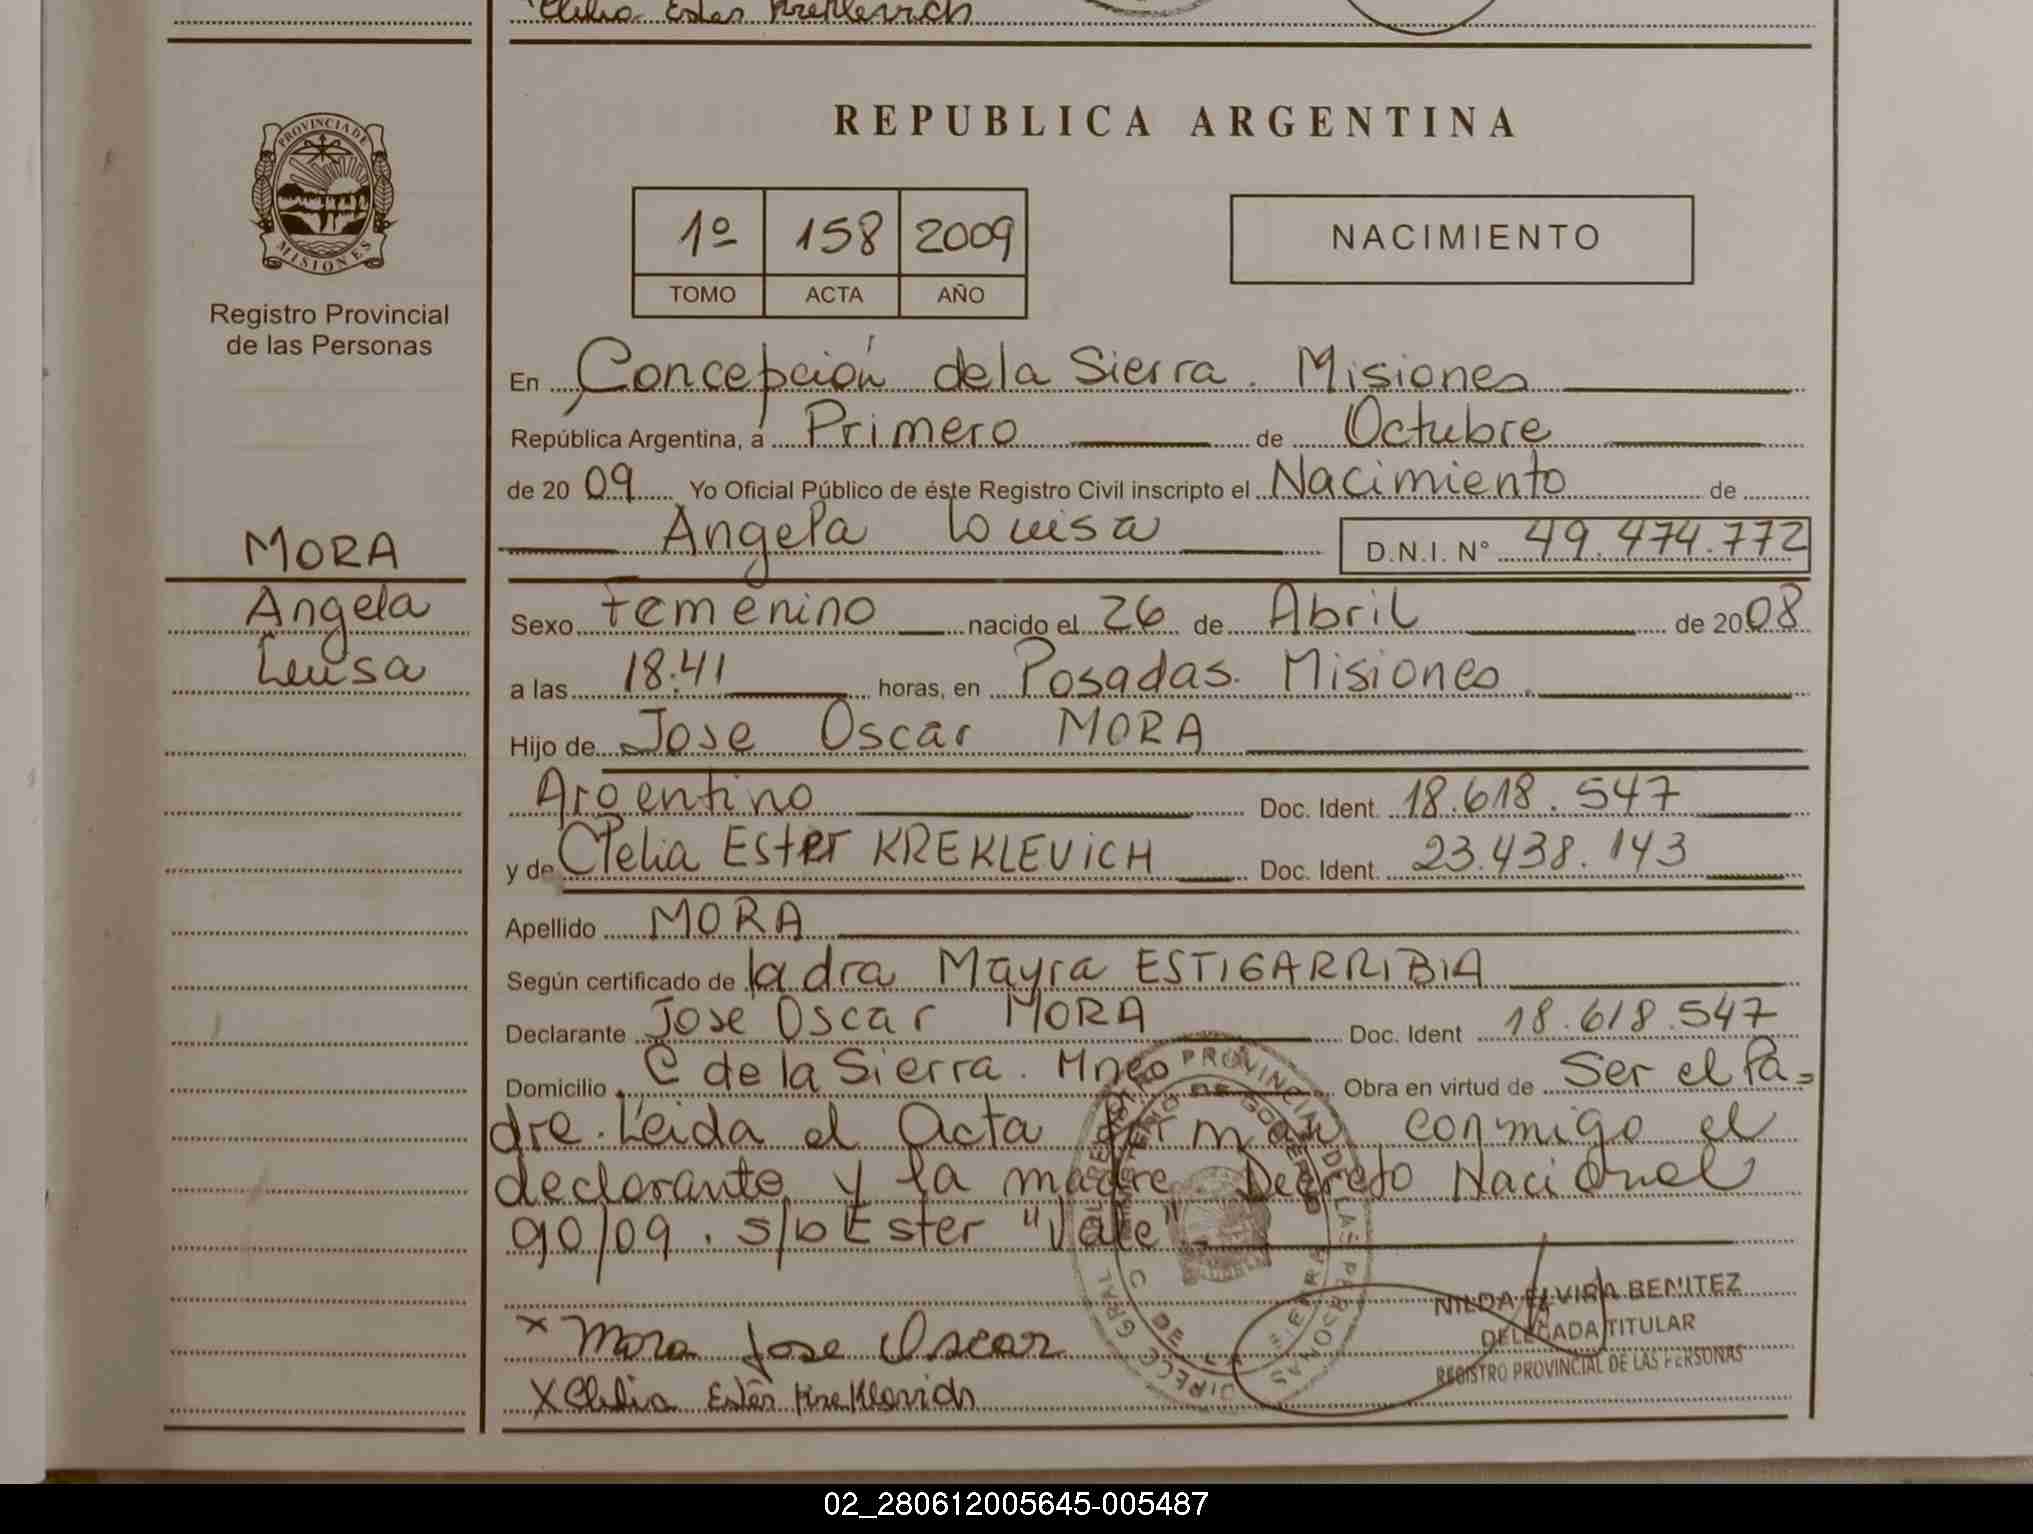 Clelia Ester Kreklevich
PROVINCIA DE
MISIONES
Registro Provincial
de las Personas
MORA
Angela
Luisa
REPUBLICA ARGENTINA
1º 158 2009
TOMO ACTA AÑO
NACIMIENTO
En Concepción de la Sierra. Misiones
República Argentina, a Primero de Octubre
de 20 09 Yo Oficial Público de éste Registro Civil inscripto el Nacimiento de
Angela Louisa D.N.I. N° 49.474.772
Sexo Femenino nacido el 26 de Abril de 2008
a las 18:41 horas, en Posadas. Misiones.
Hijo de Jose Oscar MORA
Argentino Doc. Ident. 18.618.547
y de Clelia Ester KREKLEVICH Doc. Ident. 23.438.143
Apellido MORA
Según certificado de la dra Mayra ESTIGARRIBIA
Declarante Jose Oscar MORA Doc. Ident 18.618.547
Domicilio C de la Sierra. Mnes Obra en virtud de Ser el Pa=
dre. Leida el Acta firman conmigo el
declarante y la madre. Decreto Nacional
90/09. s/b Ester "Vale"
x Mora Jose Oscar
X Clelia Ester Kreklevich
DIRECC. GRAL. REGISTRO PROVINCIAL DE LAS PERSONAS
MINISTERIO DE GOBIERNO
C. DE LA SIERRA
NILDA ELVIRA BENITEZ
DELEGADA TITULAR
REGISTRO PROVINCIAL DE LAS PERSONAS
02_280612005645-005487